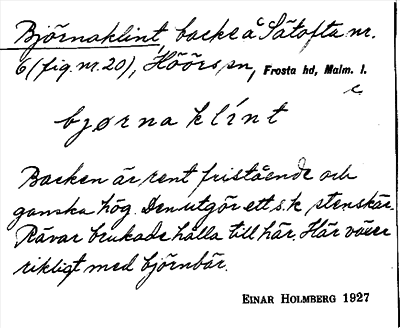 Björnaklint, backe å Sätofta nr.
6 (fig. nr. 20), Höörs sn, Frosta hd, Malm. l.
bjørna klínt
Backen är rent fristående och
ganska hög. Den utgör ett s.k. stenskär.
Rävar brukade hålla till här. Här växer
rikligt med björnbär.
EINAR HOLMBERG 1927